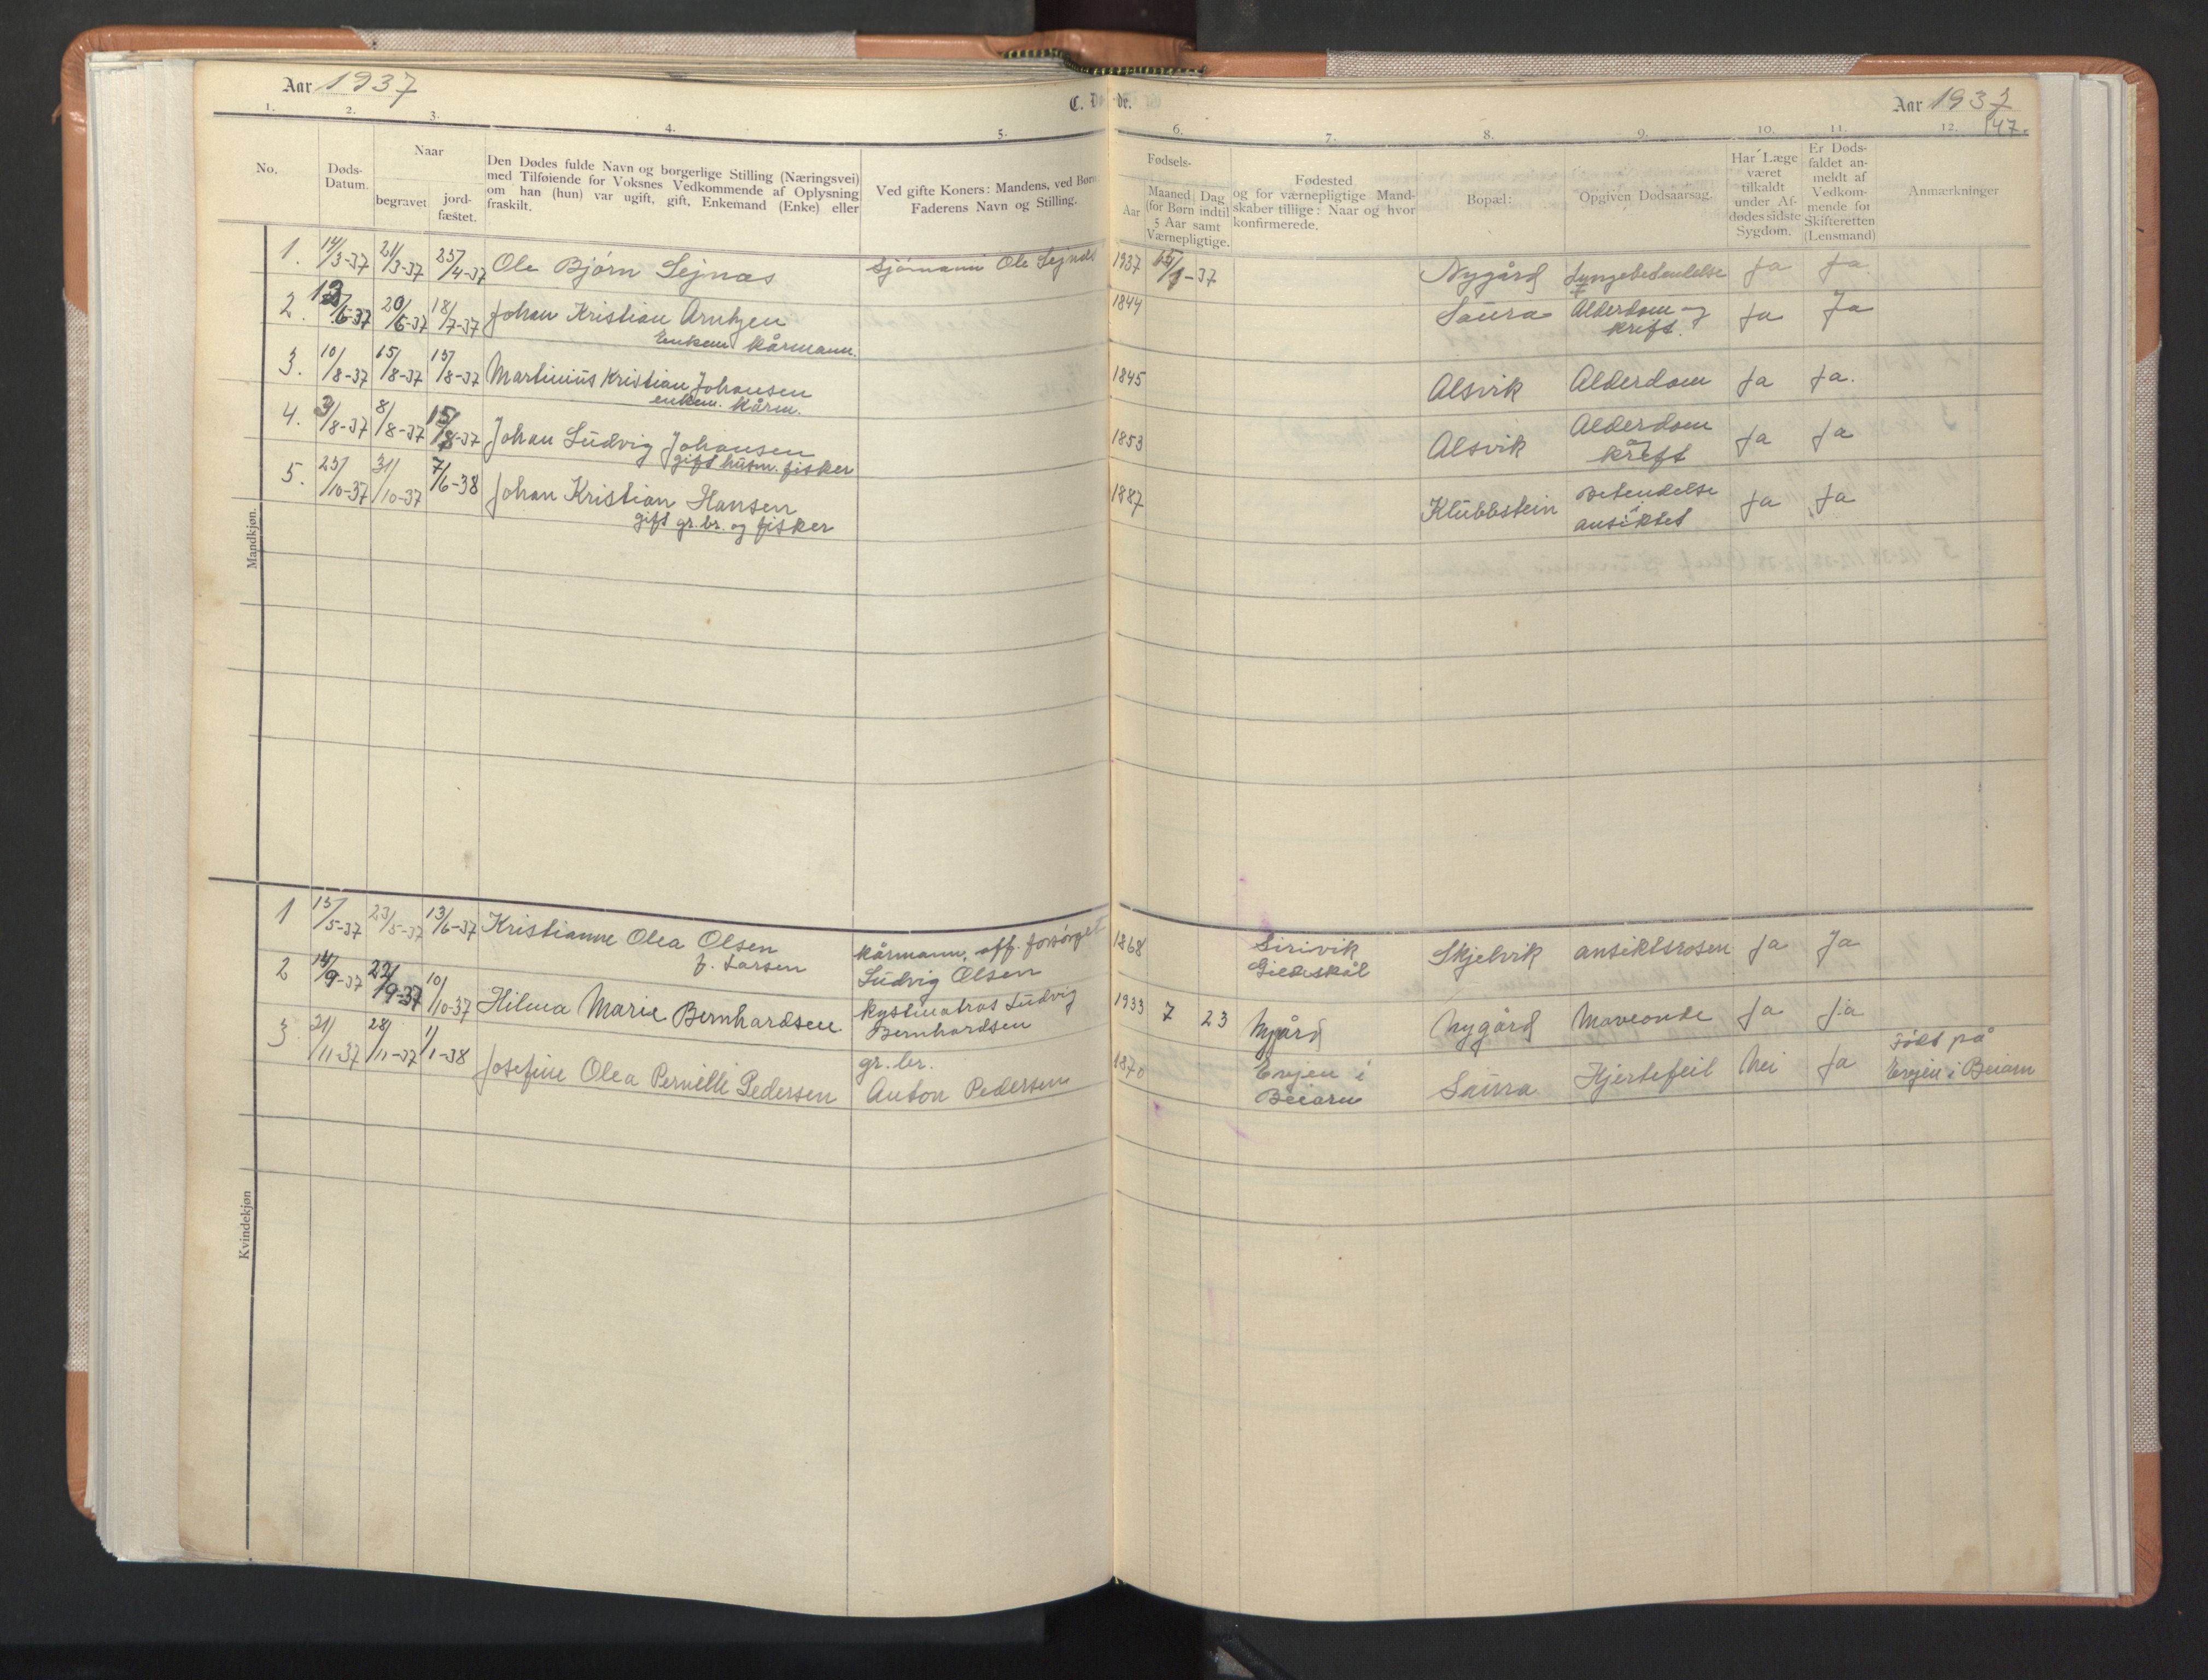 Aar 1937
C. Døde.
Aar 1937
147.
1. 2. 3. 4. 5. 6. 7. 8. 9. 10. 11. 12.
No.
Døds-
Datum.
Naar
begravet
jord-
fæstet.
Den Dødes fulde Navn og borgerlige Stilling (Næringsvei)
med Tilføiende for Voksnes Vedkommende af Oplysning
om han (hun) var ugift, gift, Enkemand (Enke) eller
fraskilt.
Ved gifte Koners: Mandens, ved Børn
Faderens Navn og Stilling.
Fødsels-
Aar
Maaned Dag
(for Børn indtil
5 Aar samt
Værnepligtige.
Fødested
og for værnepligtige Mand-
skaber tillige: Naar og hvor
konfirmerede.
Bopæl:
Opgiven Dødsaarsag.
Har Læge
været
tilkaldt
under Af-
dødes sidste
Sygdom.
Er Døds-
faldet an-
meldt af
Vedkom-
mende for
Skifteretten
(Lensmand)
Anmærkninger
Mandkjøn.
1. 14/3-37 21/3-37 25/4-37 Ole Bjørn Sejnæs Sjømann Ole Sejnæs 1937 Nygård Lungebetendelse Ja Ja.
2. 13/6-37 20/6-37 18/7-37 Johan Kristian Arntzen 1844 Saura Alderdom og Ja Ja
Enkem kårmann. kreft.
3. 10/8-37 15/8-37 15/8-37 Martinius Kristian Johansen 1845 Alsvik Alderdom Ja Ja.
enkem. kårm.
4. 3/8-37 8/8-37 15/8-37 Johan Ludvig Johansen 1853 Alsvik Alderdom Ja Ja
gift husm. fisker og kreft
5. 25/10-37 31/10-37 7/6-38 Johan Kristian Hansen 1887 Klubbstein Betendelse Ja Ja
gift gr.br. og fisker i ansiktet
Kvindekjøn
1 15/5-37 23/5-37 13/6-37 Kristianne Olea Olsen kårmann, off. forsørget 1868 Sirivik Skjelvik ansiktsrosen Ja Ja
f. Larsen Ludvig Olsen Gildeskål
2 14/9-37 22/9-37 10/10-37 Hilma Marie Bernhardsen kystmatros Ludvig 1933 7 23 Nygård Nygård Maveonde Ja Ja
Bernhardsen
3 21/11-37 28/11-37 1/1-38 Josefine Olea Pernille Pedersen gr.br. 1870 Evjen i Saura Hjertefeil Nei Ja Født på
Anton Pedersen Beiarn Evjen i Beiarn